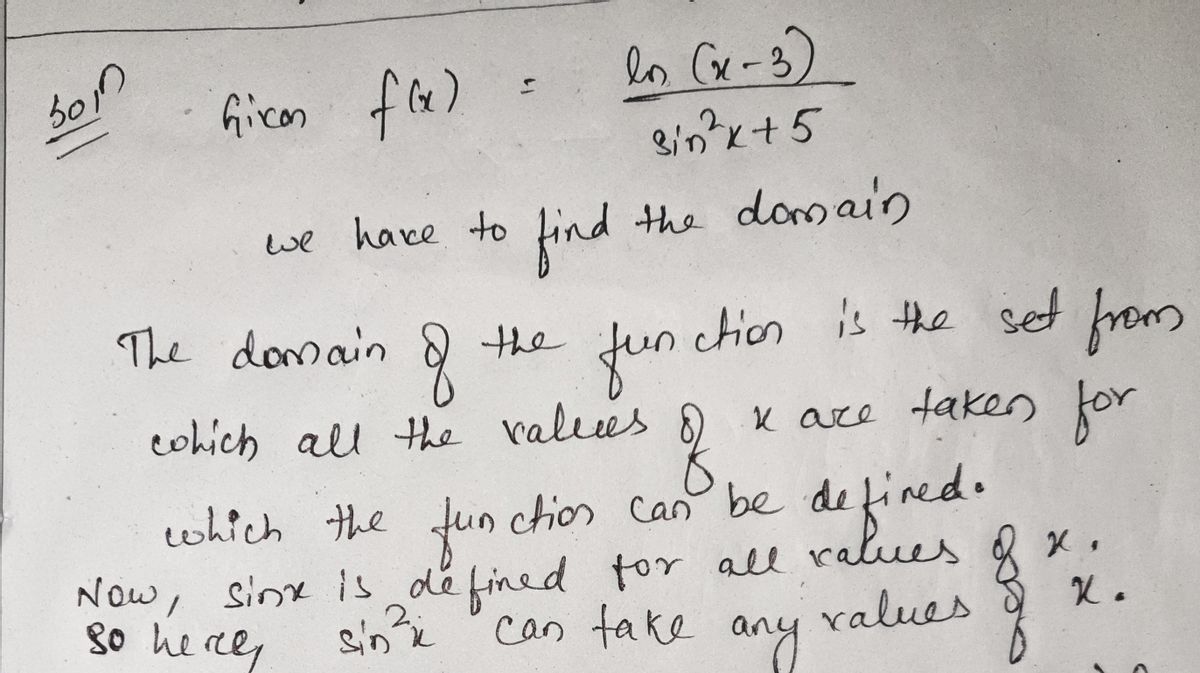 Soln Given f(x) = ln (x-3) / sin²x+5
we have to find the domain
The domain of the function is the set from
which all the values of x are taken for
which the function can be defined.
Now, sinx is defined for all values of x.
So here, sin²x can take any values of x.